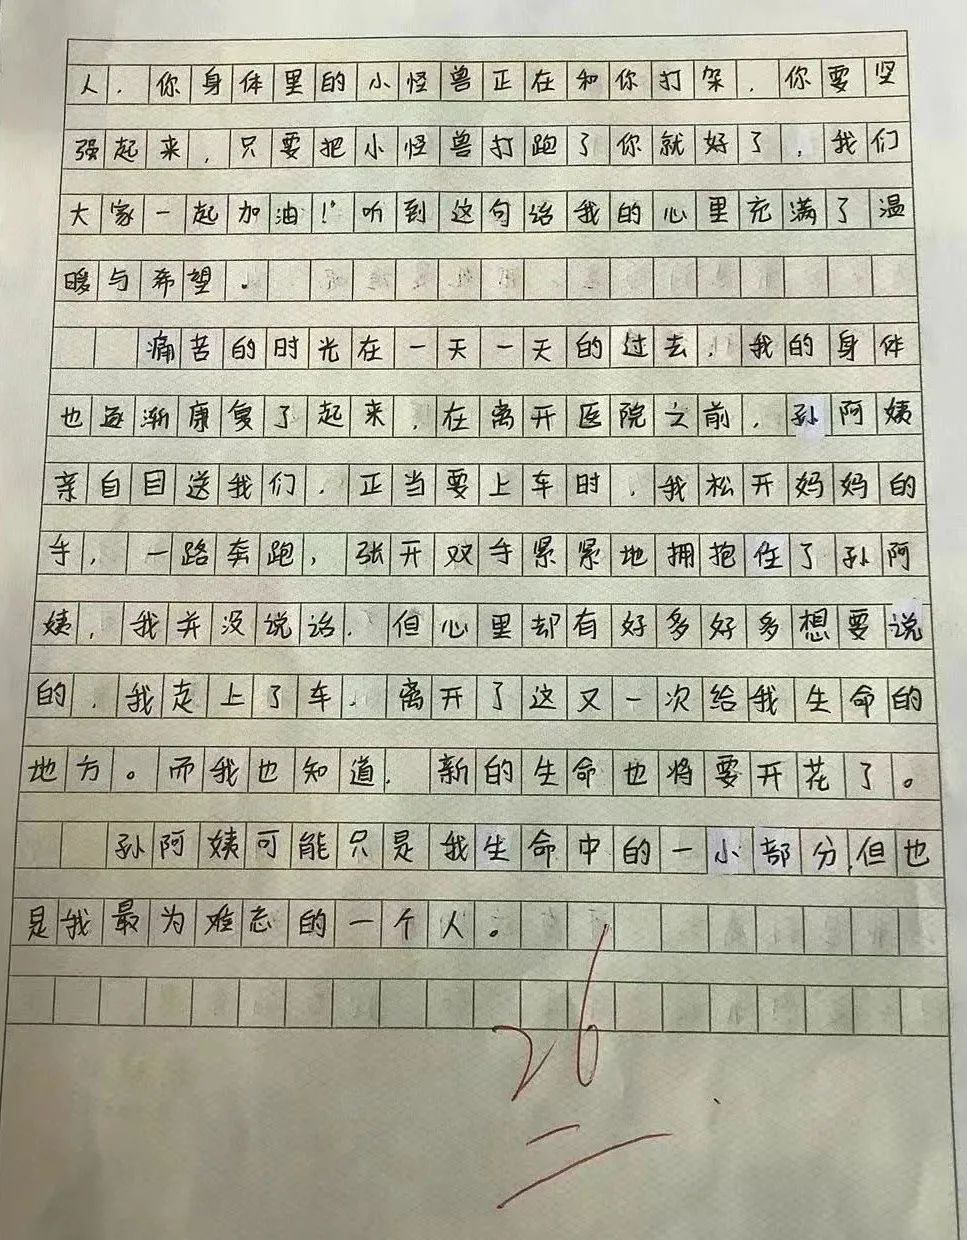 人，你身体里的小怪兽正在和你打架，你要坚
强起来，只要把小怪兽打跑了你就好了，我们
大家一起加油！"听到这句话我的心里充满了温
暖与希望。
痛苦的时光在一天一天的过去，我的身体
也逐渐康复了起来，在离开医院之前，孙阿姨
亲自目送我们，正当要上车时，我松开妈妈的
手，一路奔跑，张开双手紧紧地拥抱住了孙阿
姨，我并没说话，但心里却有好多好多想要说
的，我走上了车，离开了这又一次给我生命的
地方。而我也知道，新的生命也将要开花了。
孙阿姨可能只是我生命中的一小部分，但也
是我最为难忘的一个人。
26